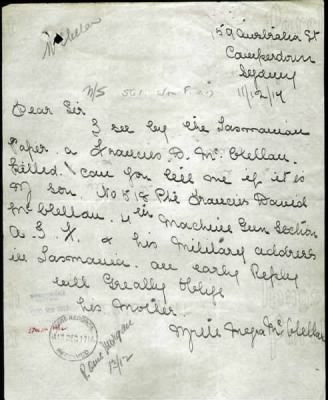 McClellan
59 Australia St
Camperdown
Sydney
11/12/17
Dear Sir
I see by the Tasmanian
Paper. a Francus D. McClellan.
killed. Can you tell me if it is
My son. No 518 Pte Francus David
McClellan. Machine Gun Section
A. I. F. & his Military address
in Tasmania. an early Reply
will Greatly Oblige
his Mother.
McClellan
13/12